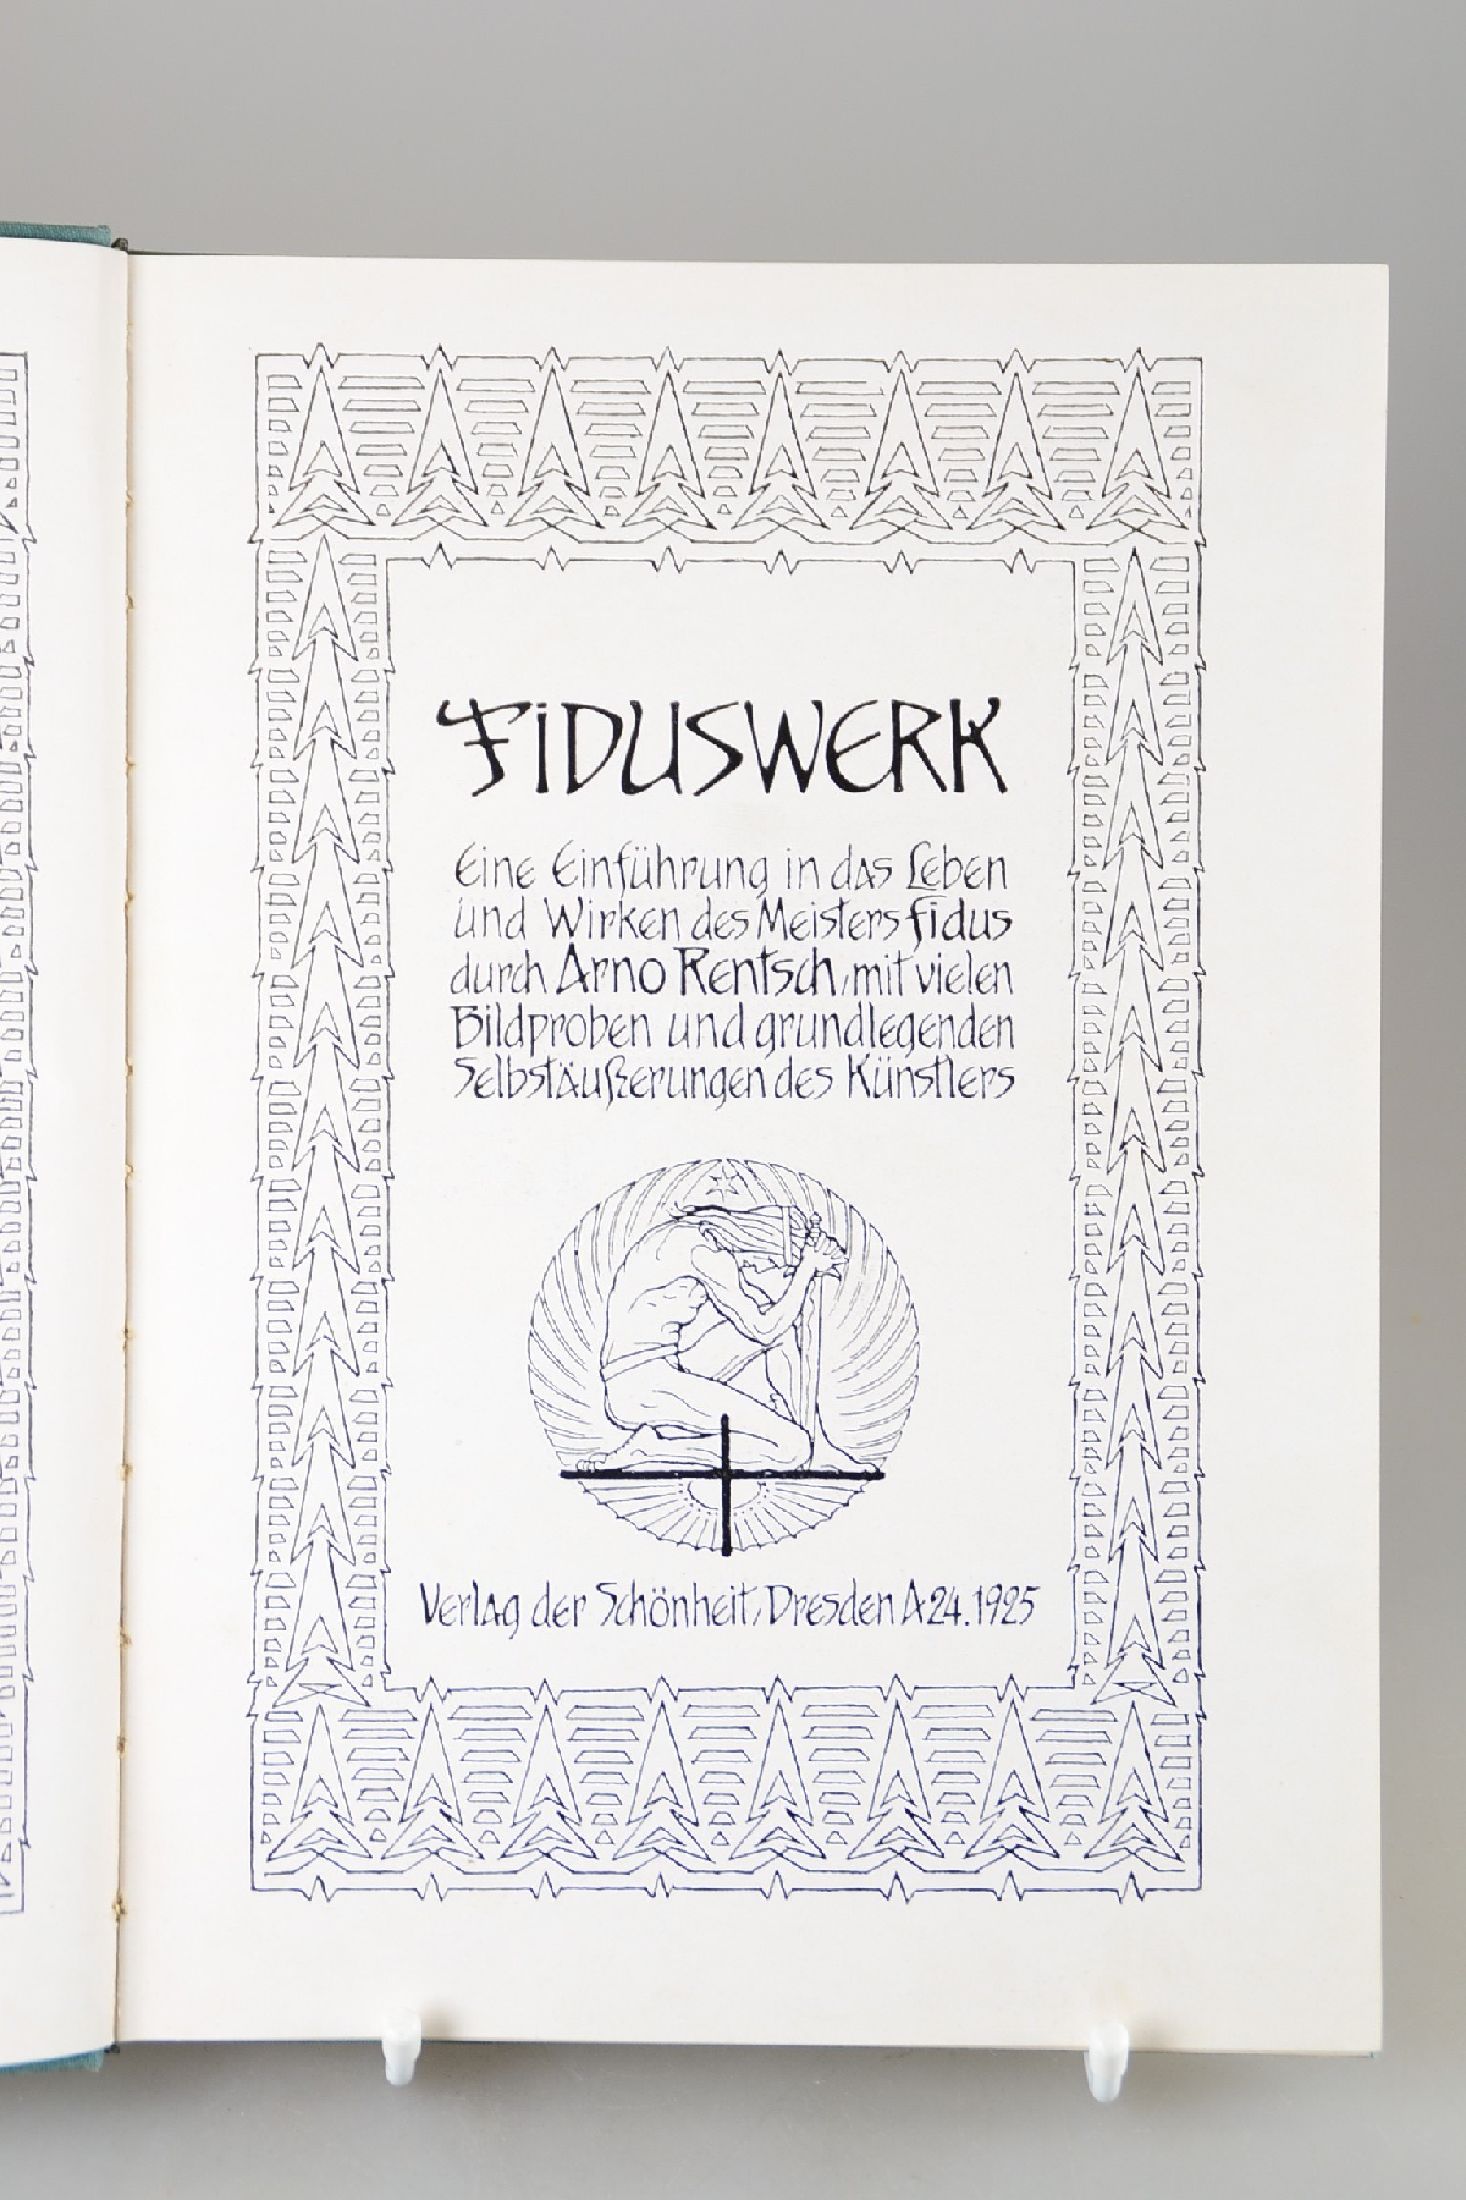 FIDUSWERK
Eine Einführung in das Leben
und Wirken des Meisters Fidus
durch Arno Rentsch, mit vielen
Bildproben und grundlegenden
Selbstäußerungen des Künstlers
Verlag der Schönheit, Dresden A24. 1925